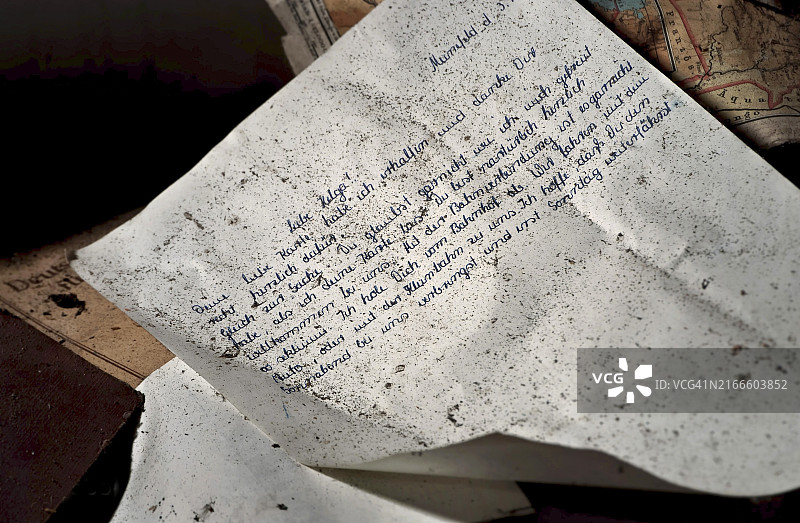 liebe Helga!
Deine liebe Karte habe ich erhalten und danke Dir
recht herzlich dafür.
Gleich zur Sache. Du glaubst garnicht wie ich mich gefreut
habe als ich deine Karte las. Du bist natürlich herzlich
willkommen bei uns. Mit der Bahnverbindung ist es garnicht
so schlimm. Ich hole Dich vom Bahnhof ab. Wir fahren mit dem
Auto oder mit der Kleinbahn zu uns. Ich hoffe dass Du den
bei uns verbringst und erst Sonntag weiterfährst.
VCG
VCG
ID: VCG41N2166603852